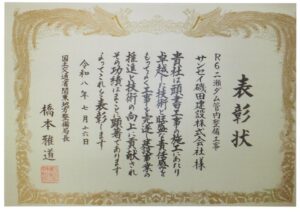 表彰状
R6二瀬ダム管内整備工事
サンセイ磯田建設株式会社様
貴社は頭書工事の施工にあたり
卓越した技術と旺盛な責任感を
もってよく工事を完遂し建設事業の
推進と技術の向上に貢献され
その功績はまことに顕著であります
よってこれを表彰します
令和八年七月十六日
国土交通省関東地方整備局長
橋本雅道